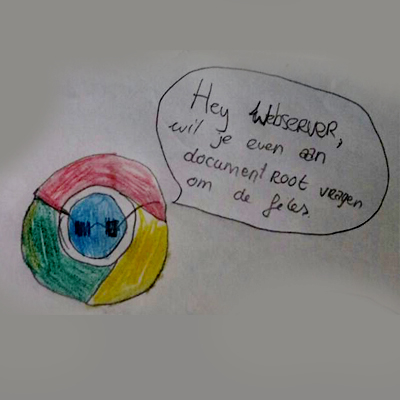 Hey Webserver,
wil je even aan
document ROOT vragen
om de files